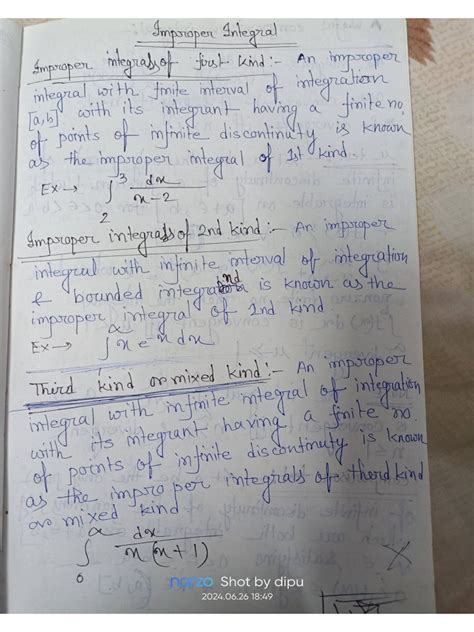 Improper Integral
Improper integrals of first kind:- An improper
integral with finite interval of integration
[a,b] with its integrant having a finite no
of points of infinite discontinuty is known
as the improper integral of 1st kind.
Ex → ∫₂³ dx/(x-2)
Improper integrals of 2nd kind:- An improper
integral with infinite interval of integration
& bounded integrand is known as the
improper integral of 2nd kind
Ex → ∫ x eˣ dx
Third kind or mixed kind:- An improper
integral with infinite integral of integration
with its integrant having a finite no
of points of infinite discontinuty is known
as the improper integrals of therd kind
or mixed kind
∫₀^α dx/(x(x+1))
narzo Shot by dipu
2024.06.26 18:49